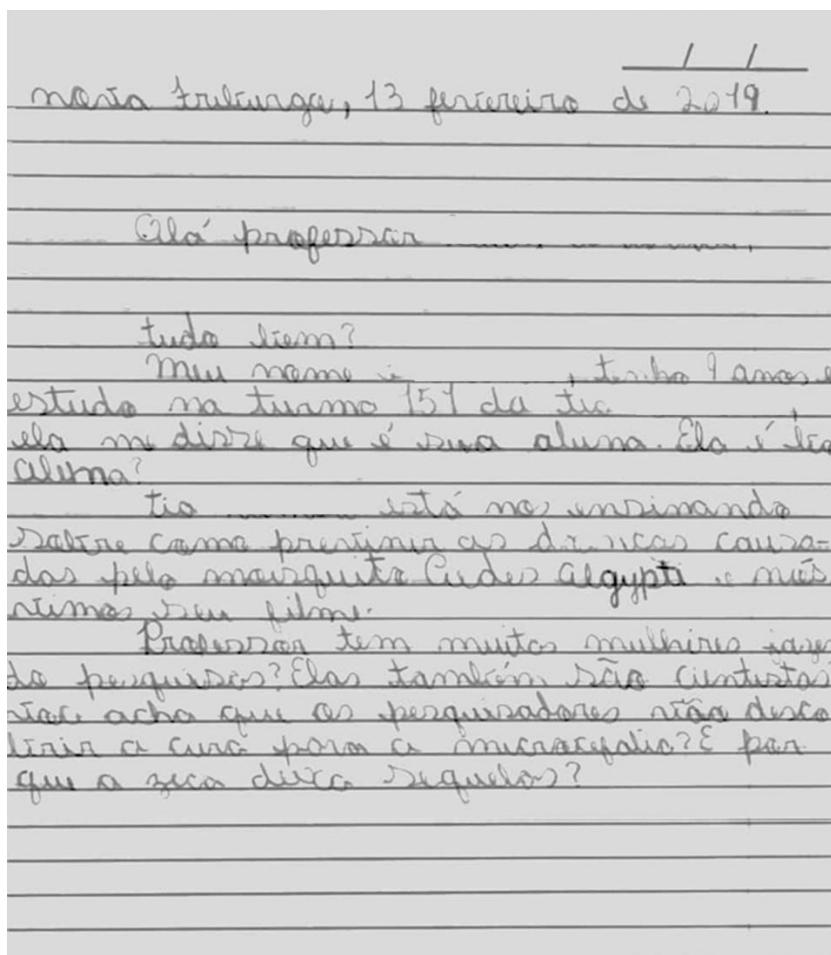 / /
nova friburgo, 13 fevereiro de 2019.
Olá professor
tudo bem?
Meu nome é , tenho 9 anos e
estudo na turma 151 da tia
ela me disse que é sua aluna. Ela é boa
aluna?
tia está nos ensinando
sobre como prevenir as doenças causa-
das pelo mosquito Aedes aegypti e nós
vimos seu filme.
Professor tem muitas mulheres fazen
do pesquisas? Elas também são cientistas
você acha que os pesquisadores vão desco
brir a cura para a microcefalia? E por
que a zica deixa sequelas?